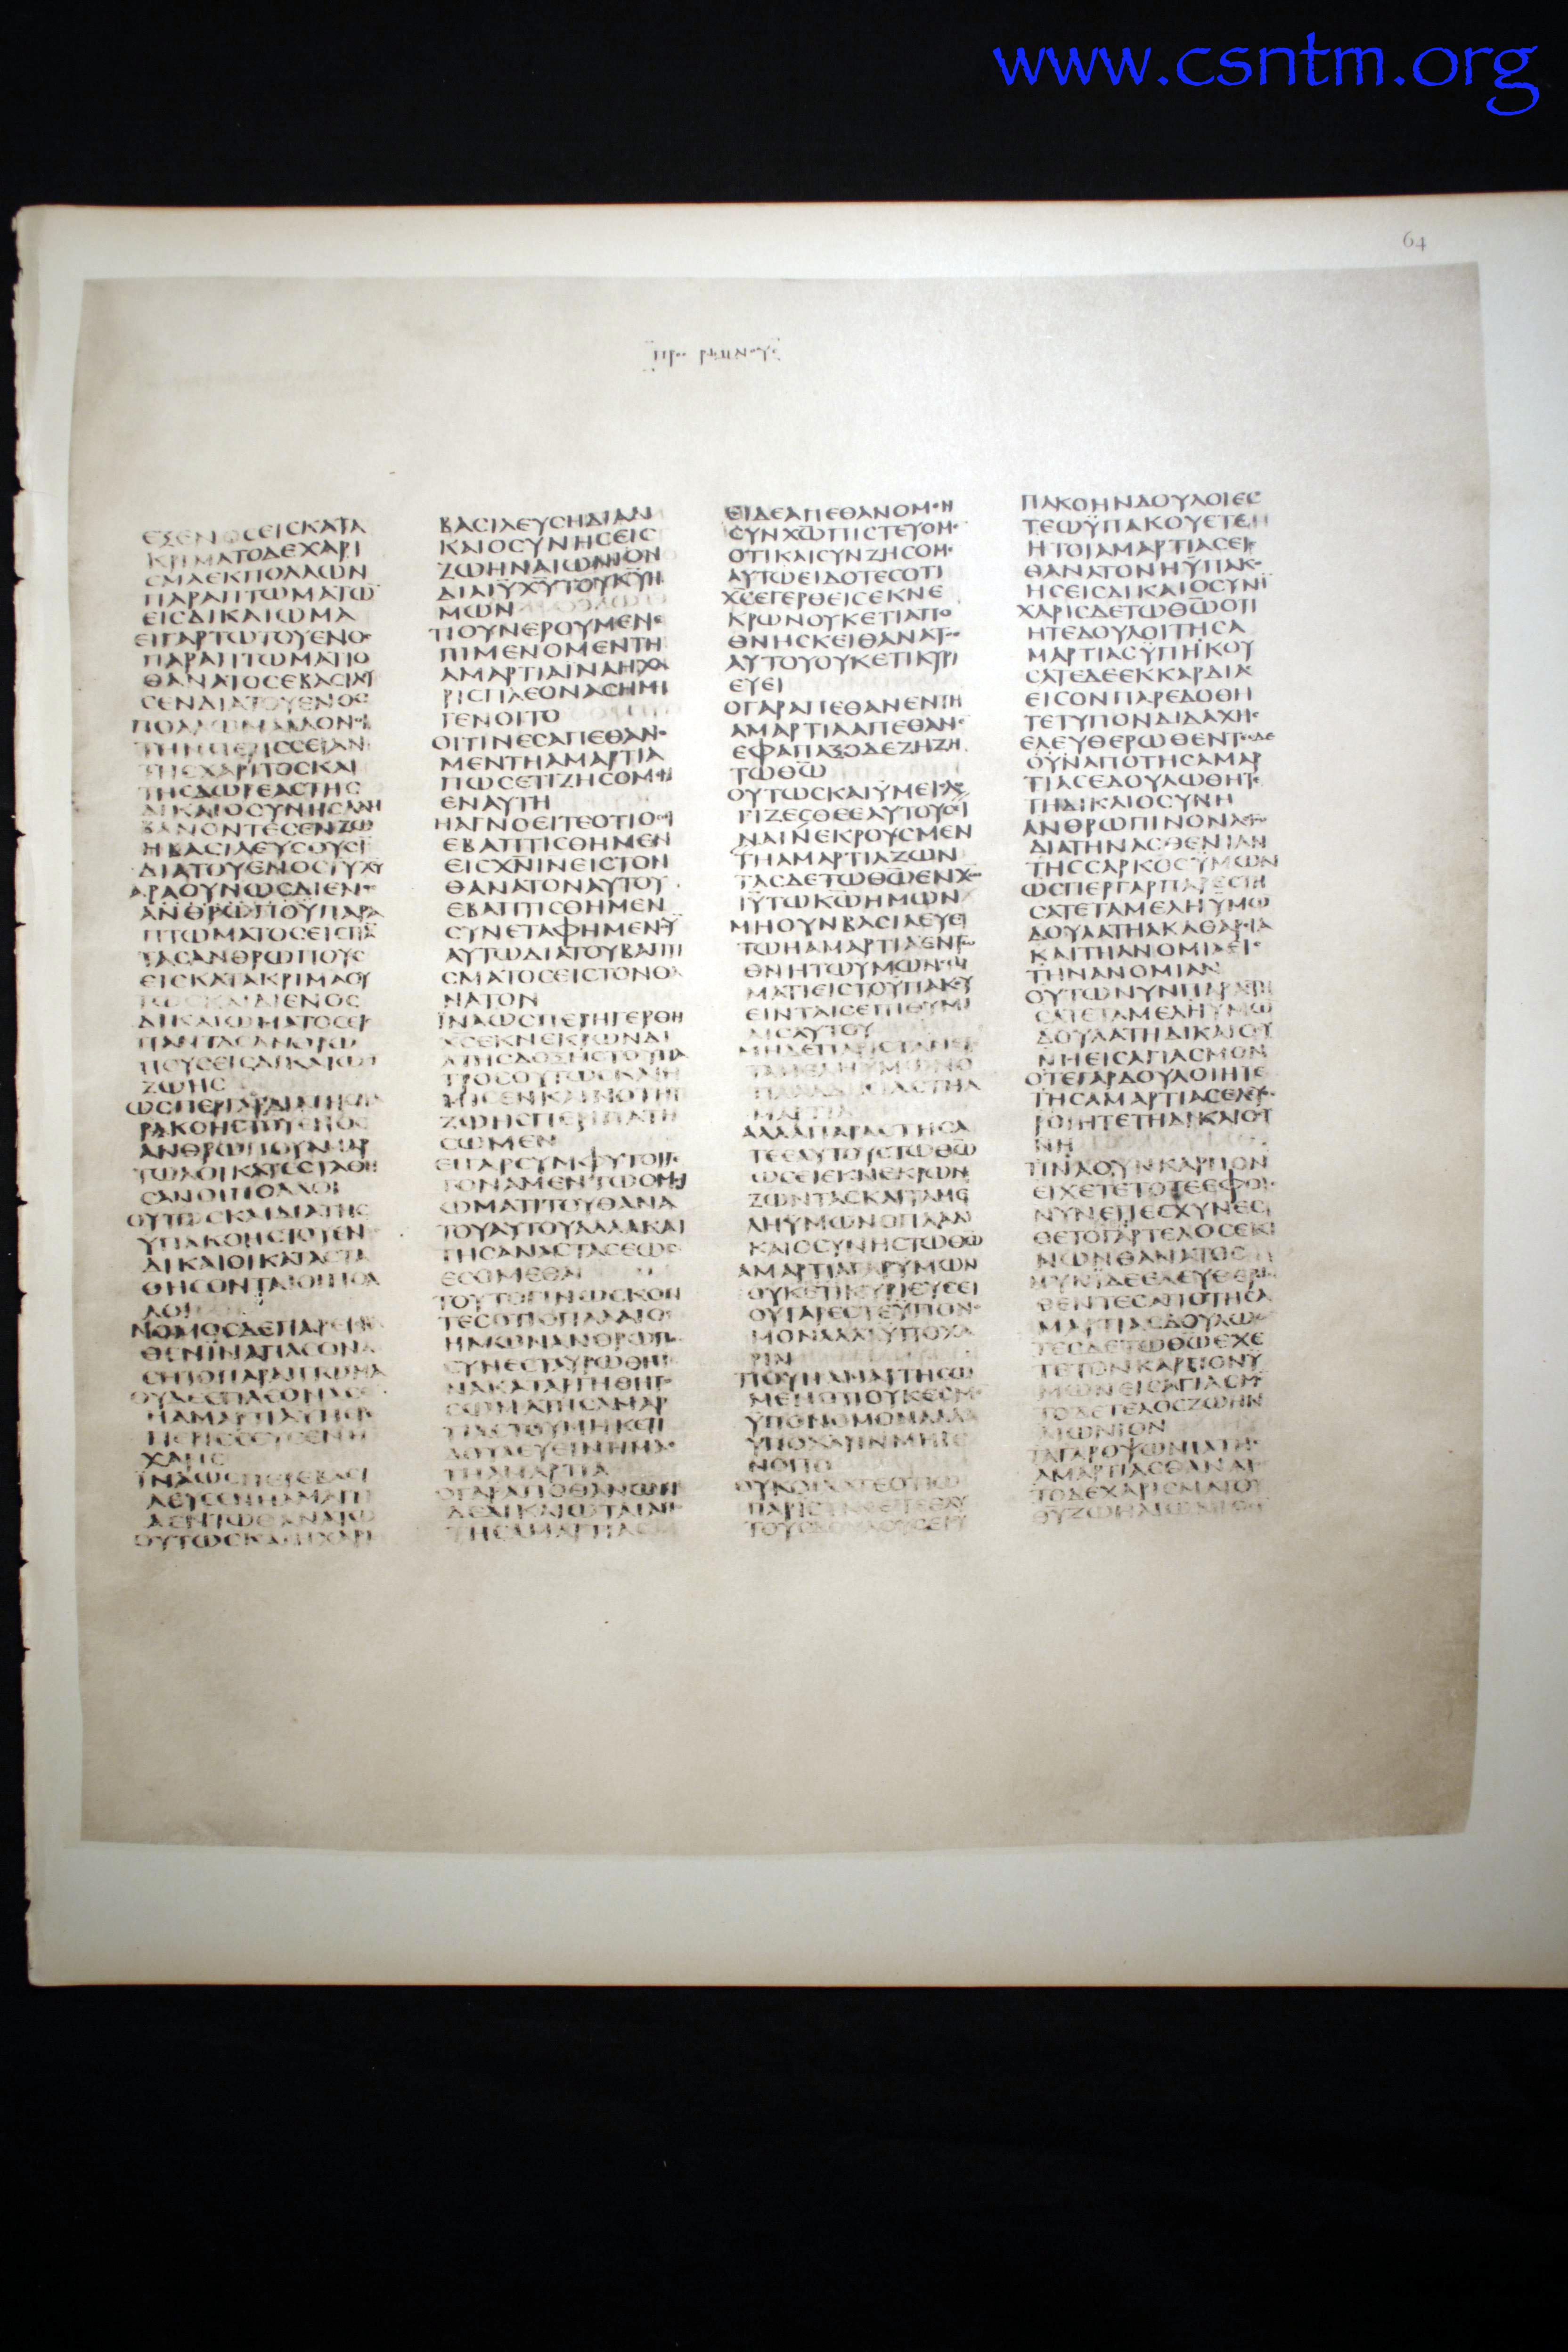 www.csntm.org
64
ΕΞΕΝΟCΕΙCΚΑΤΑ
ΚΡΙΜΑΤΟΔΕΧΑΡΙ
CΜΑΕΚΠΟΛΛΩΝ
ΠΑΡΑΠΤΩΜΑΤΩ̅
ΕΙCΔΙΚΑΙΩΜΑ
ΕΙΓΑΡΤΩΤΟΥΕΝΟC
ΠΑΡΑΠΤΩΜΑΤΙΟ
ΘΑΝΑΤΟCΕΒΑCΙΛΕΥ
CΕΝΔΙΑΤΟΥΕΝΟC
ΠΟΛΛΩΜΑΛΛΟΝΟΙ
ΤΗΝΠΕΡΙCCΕΙΑΝ
ΤΗCΧΑΡΙΤΟCΚΑΙ
ΤΗCΔΩΡΕΑCΤΗC
ΔΙΚΑΙΟCΥΝΗCΛΑΜ
ΒΑΝΟΝΤΕCΕΝΖΩ
Η ΒΑCΙΛΕΥCΟΥCΙ
ΔΙΑΤΟΥΕΝΟCΙΥΧΥ
ΑΡΑΟΥΝΩCΔΙΕΝΟC
ΑΝΘΡΩΠΟΥΠΑΡΑ
ΠΤΩΜΑΤΟCΕΙCΠΑ̅
ΤΑCΑΝΘΡΩΠΟΥC
ΕΙCΚΑΤΑΚΡΙΜΑΟΥ
ΤΩCΚΑΙΔΙΕΝΟC
ΔΙΚΑΙΩΜΑΤΟCΕΙC
ΠΑΝΤΑCΑΝΘΡΩ
ΠΟΥCΕΙCΔΙΚΑΙΩCΙ
ΖΩΗC
ΩCΠΕΡΓΑΡΔΙΑΤΗCΠΑ
ΡΑΚΟΗCΤΟΥΕΝΟC
ΑΝΘΡΩΠΟΥΑΜΑΡ
ΤΩΛΟΙΚΑΤΕCΤΑΘΗ
CΑΝΟΙΠΟΛΛΟΙ
ΟΥΤΩCΚΑΙΔΙΑΤΗC
ΥΠΑΚΟΗCΤΟΥΕΝ
ΔΙΚΑΙΟΙΚΑΤΑCΤΑ
ΘΗCΟΝΤΑΙΟΙΠΟΛ
ΛΟΙ
ΝΟΜΟCΔΕΠΑΡΕΙCΗΛ
ΘΕΝΪΝΑΠΛΕΟΝΑ
CΗΤΟΠΑΡΑΠΤΩΜΑ
ΟΥΔΕΕΠΛΕΟΝΑCΕ
ΗΑΜΑΡΤΙΑΥΠΕΡΕ
ΠΕΡΙCCΕΥCΕΝΗ
ΧΑΡΙC
ΪΝΑΩCΠΕΡΕΒΑCΙ
ΛΕΥCΕΝΗΑΜΑΡΤΙ
ΑΕΝΤΩΘΑΝΑΤΩ
ΟΥΤΩCΚΑΙΗΧΑΡΙC
ΒΑCΙΛΕΥCΗΔΙΑΔΙ
ΚΑΙΟCΥΝΗCΕΙC
ΖΩΗΝΑΙΩΝΙΟΝ
ΔΙΑΙΥΧΥΤΟΥΚΥΗ
ΜΩΝ
ΤΙΟΥΝΕΡΟΥΜΕΝΕ
ΠΙΜΕΝΟΜΕΝΤΗ
ΑΜΑΡΤΙΑΪΝΑΗΧΑ
ΡΙCΠΛΕΟΝΑCΗΜΗ
ΓΕΝΟΙΤΟ
ΟΙΤΙΝΕCΑΠΕΘΑΝΟ
ΜΕΝΤΗΑΜΑΡΤΙΑ
ΠΩCΕΤΙΖΗCΟΜΕΝ
ΕΝΑΥΤΗ
ΗΑΓΝΟΕΙΤΕΟΤΙΟCΟΙ
ΕΒΑΠΤΙCΘΗΜΕΝ
ΕΙCΧΝΙΝΕΙCΤΟΝ
ΘΑΝΑΤΟΝΑΥΤΟΥ
ΕΒΑΠΤΙCΘΗΜΕΝ
CΥΝΕΤΑΦΗΜΕΝΟΥ̅
ΑΥΤΩΔΙΑΤΟΥΒΑΠΤΙ
CΜΑΤΟCΕΙCΤΟΝΘΑ
ΝΑΤΟΝ
ΪΝΑΩCΠΕΡΗΓΕΡΘΗ
ΧCΕΚΝΕΚΡΩΝΔΙ
ΑΤΗCΔΟΞΗCΤΟΥΠΑ
ΤΡΟCΟΥΤΩCΚΑΙΗ
ΜΙCΕΝΚΑΙΝΟΤΗΤΙ
ΖΩΗCΠΕΡΙΠΑΤΗ
CΩΜΕΝ
ΕΙΓΑΡCΥΜΦΥΤΟΙΓΕ
ΓΟΝΑΜΕΝΤΩΟΜΟΙ
ΩΜΑΤΙΤΟΥΘΑΝΑ
ΤΟΥΑΥΤΟΥΑΛΛΑΚΑΙ
ΤΗCΑΝΑCΤΑCΕΩC
ΕCΟΜΕΘΑ
ΤΟΥΤΟΓΙΝΩCΚΟΝ
ΤΕCΟΤΙΟΠΑΛΑΙΟC
ΗΜΩΝΑΝΘΡΩΠΟC
CΥΝΕCΤΑΥΡΩΘΗΪ
ΝΑΚΑΤΑΡΓΗΘΗΤΟ
CΩΜΑΤΗCΑΜΑΡ
ΤΙΑCΤΟΥΜΗΚΕΤΙ
ΔΟΥΛΕΥΕΙΝΗΜΑC
ΤΗΑΜΑΡΤΙΑ
ΟΓΑΡΑΠΟΘΑΝΩΝ
ΔΕΔΙΚΑΙΩΤΑΙΑΠΟ
ΤΗCΑΜΑΡΤΙΑC
ΕΙΔΕΑΠΕΘΑΝΟΜΕΝ
CΥΝΧΩΠΙCΤΕΥΟΜΕ
ΟΤΙΚΑΙCΥΝΖΗCΟΜΕ
ΑΥΤΩΕΙΔΟΤΕCΟΤΙ
ΧCΕΓΕΡΘΕΙCΕΚΝΕ
ΚΡΩΝΟΥΚΕΤΙΑΠΟ
ΘΝΗCΚΕΙΘΑΝΑΤΟC
ΑΥΤΟΥΟΥΚΕΤΙΚΥΡΙ
ΕΥΕΙ
ΟΓΑΡΑΠΕΘΑΝΕΝΤΗ
ΑΜΑΡΤΙΑΑΠΕΘΑΝΕ
ΕΦΑΠΑΞΟΔΕΖΗΖΗ
ΤΩΘΩ
ΟΥΤΩCΚΑΙΥΜΕΙCΛΟ
ΓΙΖΕCΘΕΕΑΥΤΟΥCΕΙ
ΝΑΙΝΕΚΡΟΥCΜΕΝ
ΤΗΑΜΑΡΤΙΑΖΩΝ
ΤΑCΔΕΤΩΘΩΕΝΧΩ
ΙΥΤΩΚΩΗΜΩΝ
ΜΗΟΥΝΒΑCΙΛΕΥΕ
ΤΩΗΑΜΑΡΤΙΑΕΝΤΩ
ΘΝΗΤΩΥΜΩΝCΩ
ΜΑΤΙΕΙCΤΟΥΠΑΚΟΥ
ΕΙΝΤΑΙCΕΠΙΘΥΜΙ
ΑΙCΑΥΤΟΥ
ΜΗΔΕΠΑΡΙCΤΑΝΕΤΕ
ΤΑΜΕΛΗΥΜΩΝΟ
ΠΛΑΑΔΙΚΙΑCΤΗΑ
ΜΑΡΤΙΑ
ΑΛΛΑΠΑΡΑCΤΗCΑ
ΤΕΕΑΥΤΟΥCΤΩΘΩ
ΩCΕΙΕΚΝΕΚΡΩΝ
ΖΩΝΤΑCΚΑΙΤΑΜΕ
ΛΗΥΜΩΝΟΠΛΑΔΙ
ΚΑΙΟCΥΝΗCΤΩΘΩ
ΑΜΑΡΤΙΑΓΑΡΥΜΩΝ
ΟΥΚΕΤΙΚΥΡΙΕΥCΕΙ
ΟΥΓΑΡΕCΤΕΫΠΟΝΟ
ΜΟΝΑΛΛΑΫΠΟΧΑ
ΡΙΝ
ΤΙΟΥΝΑΜΑΡΤΗCΩ
ΜΕΝΟΤΙΟΥΚΕCΜΕ
ΫΠΟΝΟΜΟΝΑΛΛΑ
ΫΠΟΧΑΡΙΝΜΗΓΕ
ΝΟΙΤΟ
ΟΥΚΟΙΔΑΤΕΟΤΙΩ
ΠΑΡΙCΤΑΝΕΤΕΕΑΥ
ΤΟΥCΔΟΥΛΟΥCΕΙCΥ
ΠΑΚΟΗΝΔΟΥΛΟΙΕC
ΤΕΩΫΠΑΚΟΥΕΤΕ
ΗΤΟΙΑΜΑΡΤΙΑCΕΙC
ΘΑΝΑΤΟΝΗΫΠΑΚΟ
ΗCΕΙCΔΙΚΑΙΟCΥΝΗ̅
ΧΑΡΙCΔΕΤΩΘΩΟΤΙ
ΗΤΕΔΟΥΛΟΙΤΗCΑ
ΜΑΡΤΙΑCΫΠΗΚΟΥ
CΑΤΕΔΕΕΚΚΑΡΔΙΑC
ΕΙCΟΝΠΑΡΕΔΟΘΗ
ΤΕΤΥΠΟΝΔΙΔΑΧΗC
ΕΛΕΥΘΕΡΩΘΕΝΤΕC
ΟΥΝΑΠΟΤΗCΑΜΑΡ
ΤΙΑCΕΔΟΥΛΩΘΗΤΕ
ΤΗΔΙΚΑΙΟCΥΝΗ
ΑΝΘΡΩΠΙΝΟΝΛΕΓΩ
ΔΙΑΤΗΝΑCΘΕΝΙΑΝ
ΤΗCCΑΡΚΟCΫΜΩΝ
ΩCΠΕΡΓΑΡΠΑΡΕCΤΗ
CΑΤΕΤΑΜΕΛΗΥΜΩ̅
ΔΟΥΛΑΤΗΑΚΑΘΑΡCΙΑ
ΚΑΙΤΗΑΝΟΜΙΑΕΙC
ΤΗΝΑΝΟΜΙΑΝ
ΟΥΤΩΝΥΝΠΑΡΑCΤΗ
CΑΤΕΤΑΜΕΛΗΥΜΩ̅
ΔΟΥΛΑΤΗΔΙΚΑΙΟCΥ
ΝΗΕΙCΑΓΙΑCΜΟΝ
ΟΤΕΓΑΡΔΟΥΛΟΙΗΤΕ
ΤΗCΑΜΑΡΤΙΑCΕΛΕΥ
ΡΟΙΗΤΕΤΗΔΙΚΑΙΟCΥ
ΝΗ
ΤΙΝΑΟΥΝΚΑΡΠΟΝ
ΕΙΧΕΤΕΤΟΤΕΕΦΟΙC
ΝΥΝΕΠΕCΧΥΝΕC
ΘΕΤΟΓΑΡΤΕΛΟCΕΚΕΙ
ΝΩΝΘΑΝΑΤΟC
ΝΥΝΙΔΕΕΛΕΥΘΕΡΩ
ΘΕΝΤΕCΑΠΟΤΗCΑ
ΜΑΡΤΙΑCΔΟΥΛΩΘΕ
ΤΕCΔΕΤΩΘΩΕΧΕ
ΤΕΤΟΝΚΑΡΠΟΝΫ
ΜΩΝΕΙCΑΓΙΑCΜΟ
ΤΟΔΕΤΕΛΟCΖΩΗΝ
ΑΙΩΝΙΟΝ
ΤΑΓΑΡΟΨΩΝΙΑΤΗC
ΑΜΑΡΤΙΑCΘΑΝΑΤΟC
ΤΟΔΕΧΑΡΙCΜΑΤΟΥ
ΘΥΖΩΗΑΙΩΝΙΟC